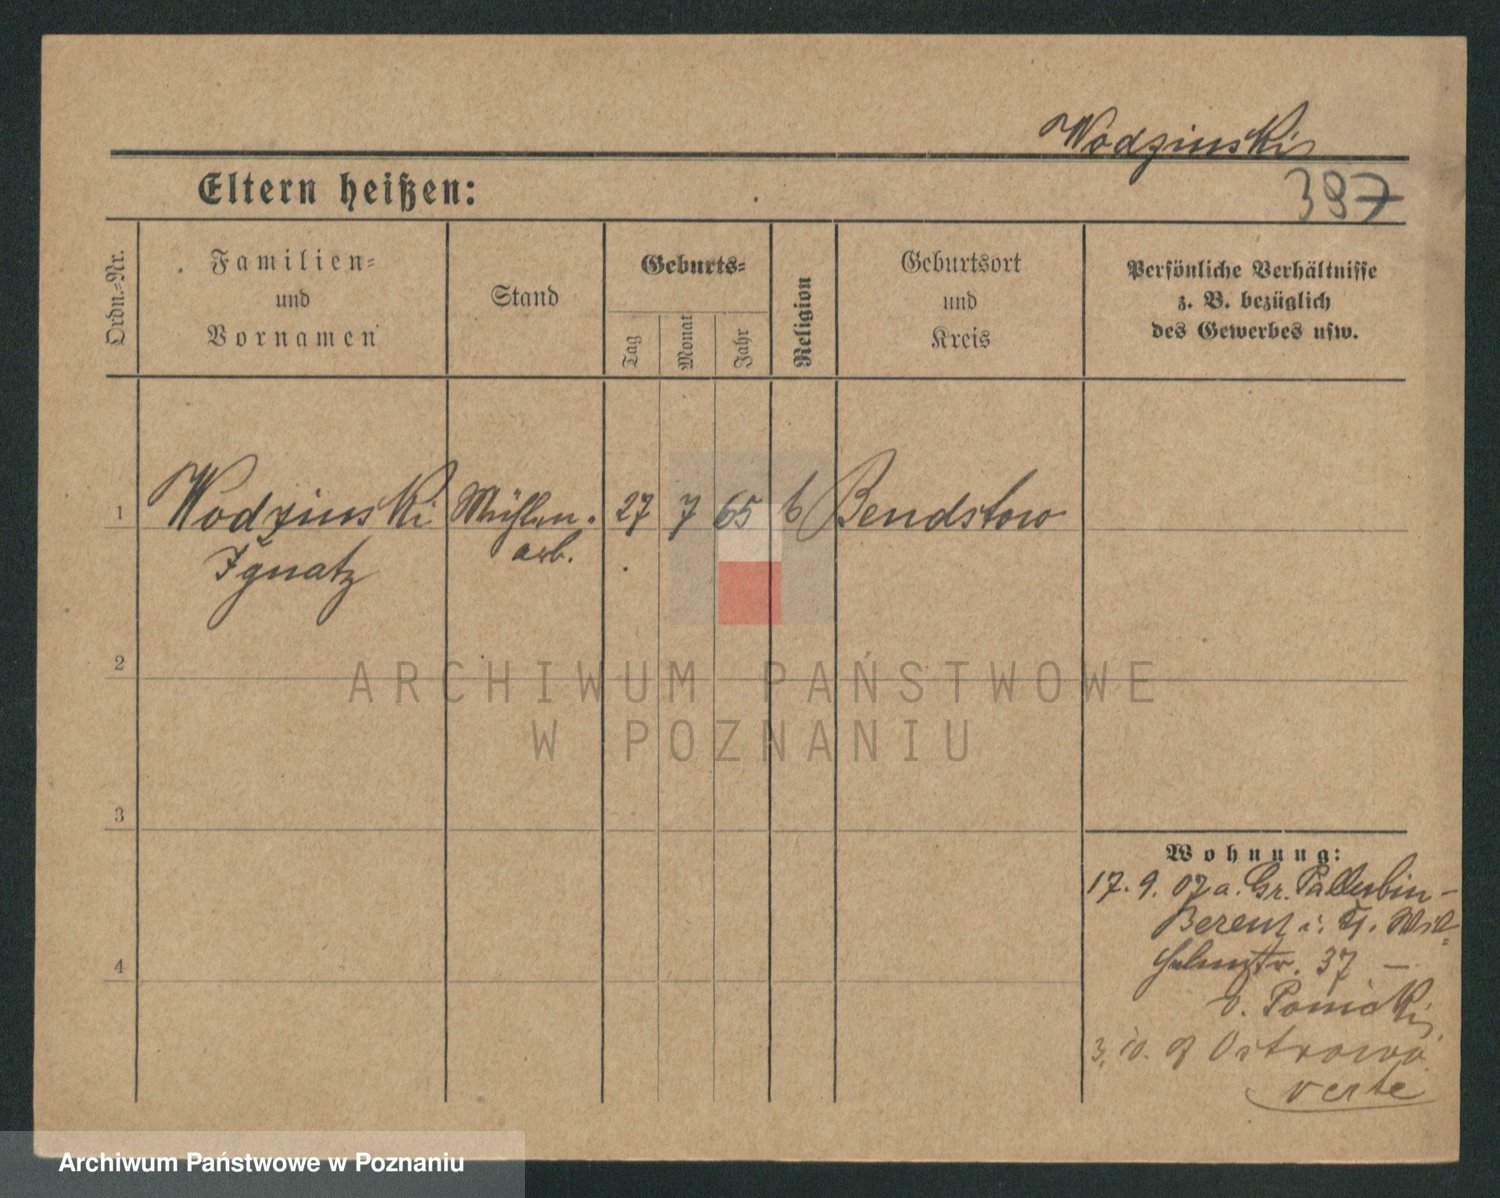 Wodzinski
Eltern heißen:
397
Ordn.-Nr.
Familien-
und
Vornamen
Stand
Geburts-
Tag
Monat
Jahr
Religion
Geburtsort
und
Kreis
Persönliche Verhältnisse
z. B. bezüglich
des Gewerbes usw.
1
Wodzinski Mühlen- 27 7 65 Bendstow
Ignatz arb.
2
ARCHIWUM PAŃSTWOWE
W POZNANIU
3
Wohnung:
17. 9. 07 a. Gr. Pallubin-
Berent i. Wil-
helmstr. 37 -
b. Ponicki
4
3. 10. Ostrowo
verte
Archiwum Państwowe w Poznaniu